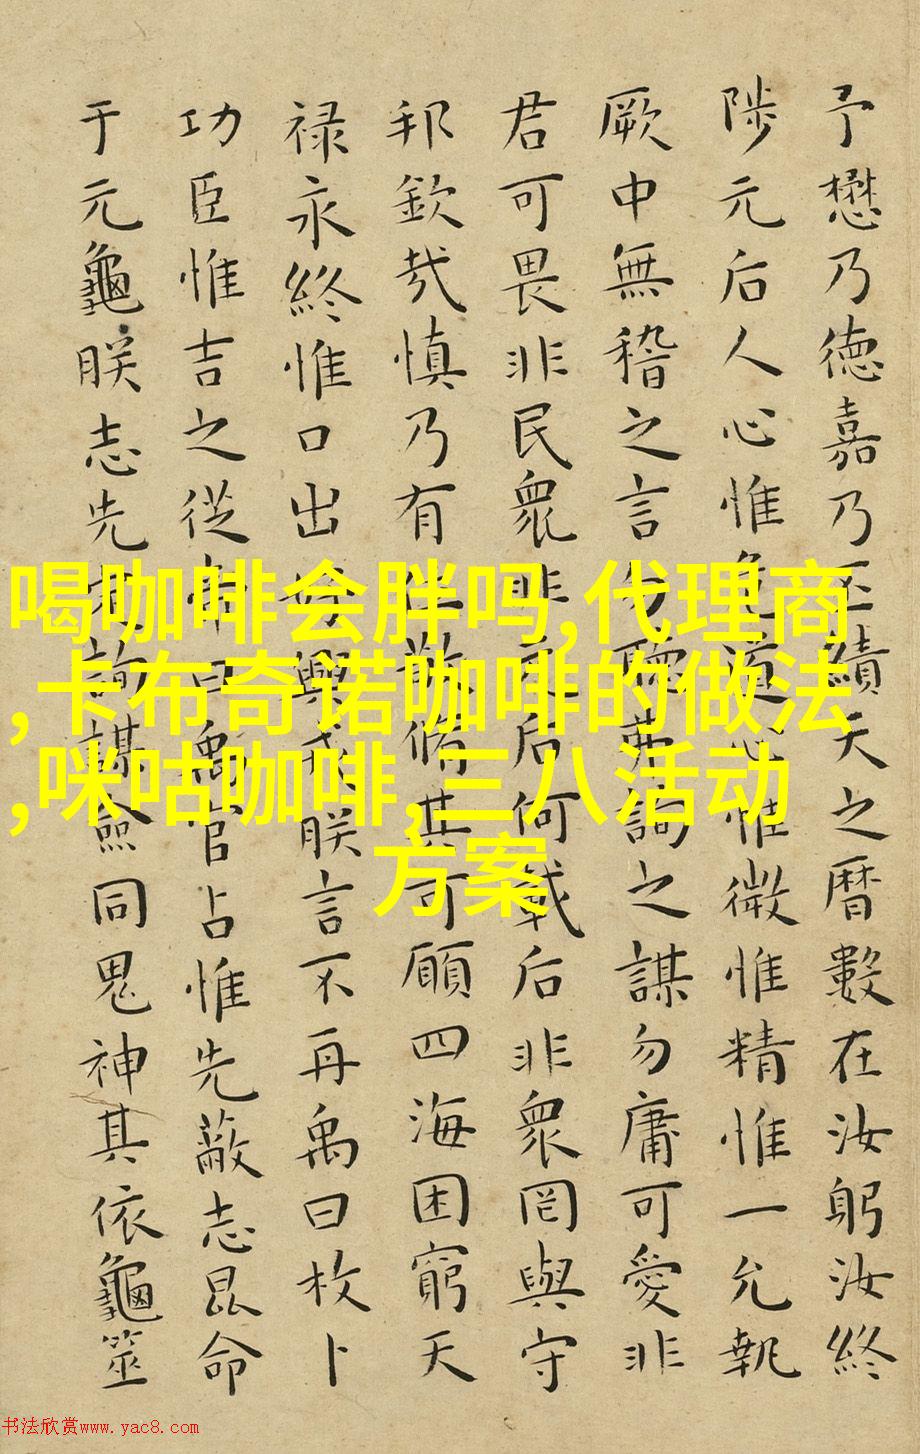 予懋乃德嘉乃丕績天之曆數在汝躬汝終
陟元后人心惟危道心惟微惟精惟一允執
厥中無稽之言勿聽弗詢之謀勿庸可愛非
君可畏非民眾非元后何戴后非眾罔與守
邦欽哉慎乃有位敬脩其可願四海困窮天
禄永終惟口出好興戎朕言不再禹曰枚卜
功臣惟吉之從帝曰禹官占惟先蔽志昆命
于元龜朕志先定詢謀僉同鬼神其依龜筮
喝咖啡会胖吗,代理商
,卡布奇诺咖啡的做法
,咪咕咖啡,三八活动
方案
书法欣赏www.yac8.com